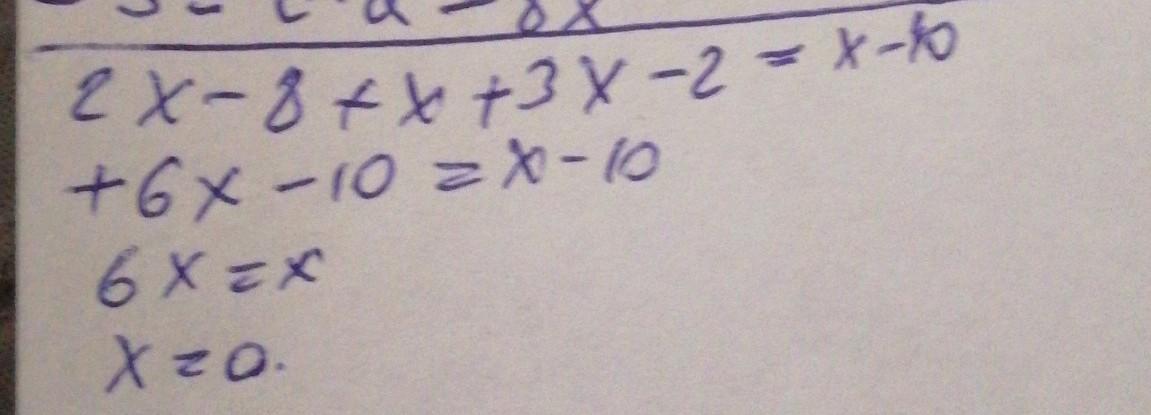 2x - 8 + x + 3x - 2 = x - 10
+6x - 10 = x - 10
6x = x
x = 0.